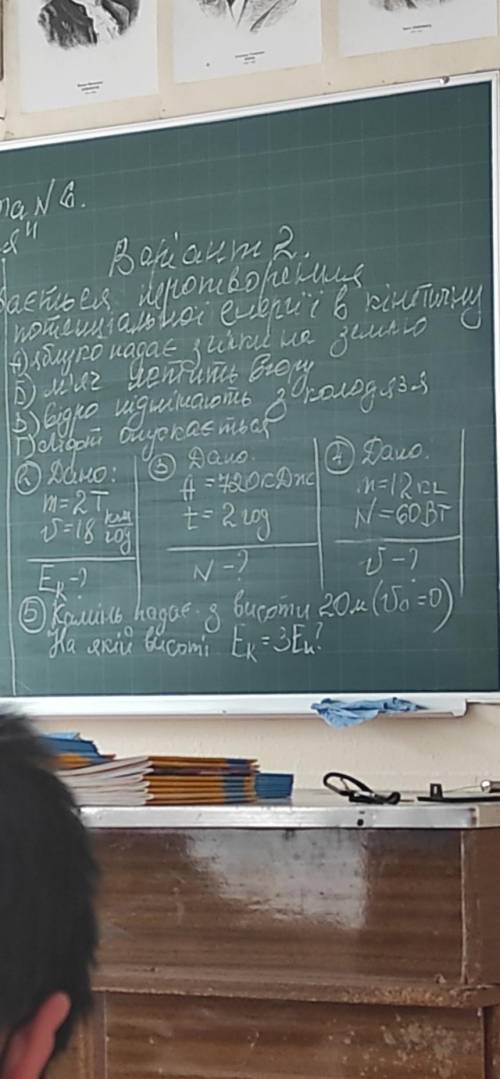 та N 6.
я"
Варіант 2.
вається перетворення
потенціальної енергії в кінетичну
А) яблуко падає з гілки на землю
Б) м'яч летить вгору
В) відро піднімають з колодязя
Г) ліфт опускається
② Дано:
m = 2 т
v = 18 км/год
Eк - ?
③ Дано:
A = 720 кДж
t = 2 год
N - ?
④ Дано:
m = 12 кг
N = 60 Вт
v - ?
⑤ Камінь падає з висоти 20 м (v₀ = 0)
На якій висоті Eк = 3Eп?